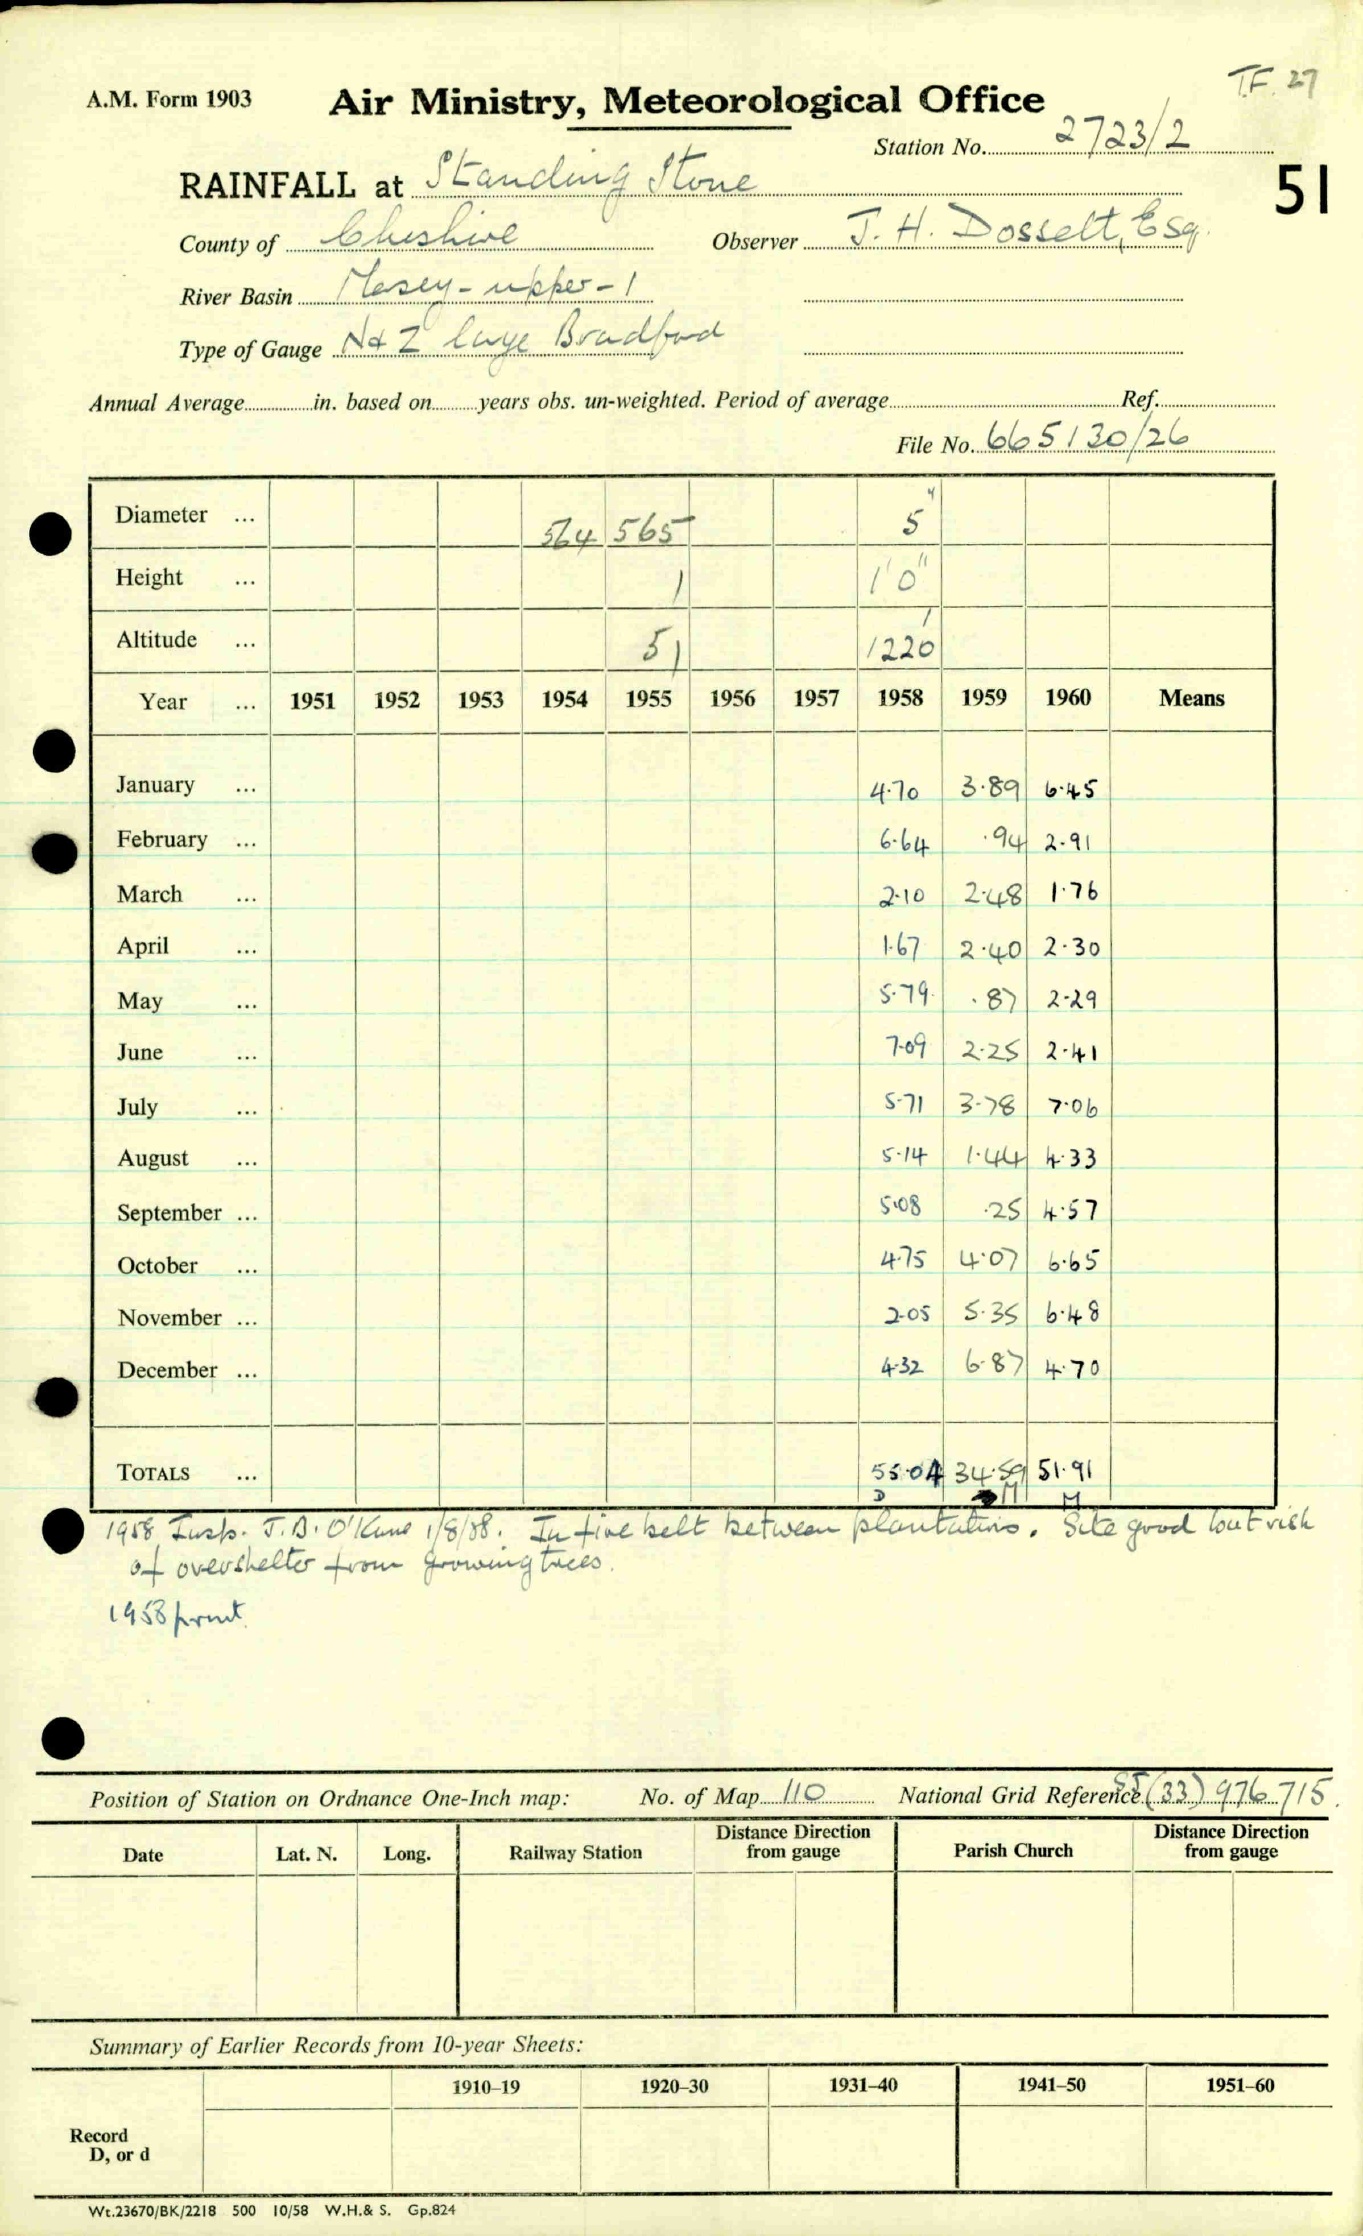 T.F. 27
A.M. Form 1903
Air Ministry, Meteorological Office
Station No. 2723/2
51
RAINFALL at Standing Stone
County of Cheshire Observer J. H. Dossett, Esq.
River Basin Mersey - upper - 1
Type of Gauge N & Z large Bradford
Annual Average in. based on years obs. un-weighted. Period of average Ref.
File No. 665130/26
Diameter ... 564 565 5"
Height ... 1 1'0"
Altitude ... 51 1220'
Year ... 1951 1952 1953 1954 1955 1956 1957 1958 1959 1960 Means
January ... 4.70 3.89 6.45
February ... 6.64 .94 2.91
March ... 2.10 2.48 1.76
April ... 1.67 2.40 2.30
May ... 5.79 .87 2.29
June ... 7.09 2.25 2.41
July ... 5.71 3.78 7.06
August ... 5.14 1.44 4.33
September ... 5.08 .25 4.57
October ... 4.75 4.07 6.65
November ... 2.05 5.35 6.48
December ... 4.32 6.87 4.70
TOTALS ... 55.04 34.59 51.91
D M M
1958 Insp. J.B. O'Kane 1/8/58. In fire belt between plantations. Site good but risk
of overshelter from growing trees.
1958 print
Position of Station on Ordnance One-Inch map: No. of Map 110 National Grid Reference (33) 976 715
Date Lat. N. Long. Railway Station Distance Direction from gauge Parish Church Distance Direction from gauge
Summary of Earlier Records from 10-year Sheets:
1910–19 1920–30 1931–40 1941–50 1951–60
Record
D, or d
Wt.23670/BK/2218 500 10/58 W.H.& S. Gp.824